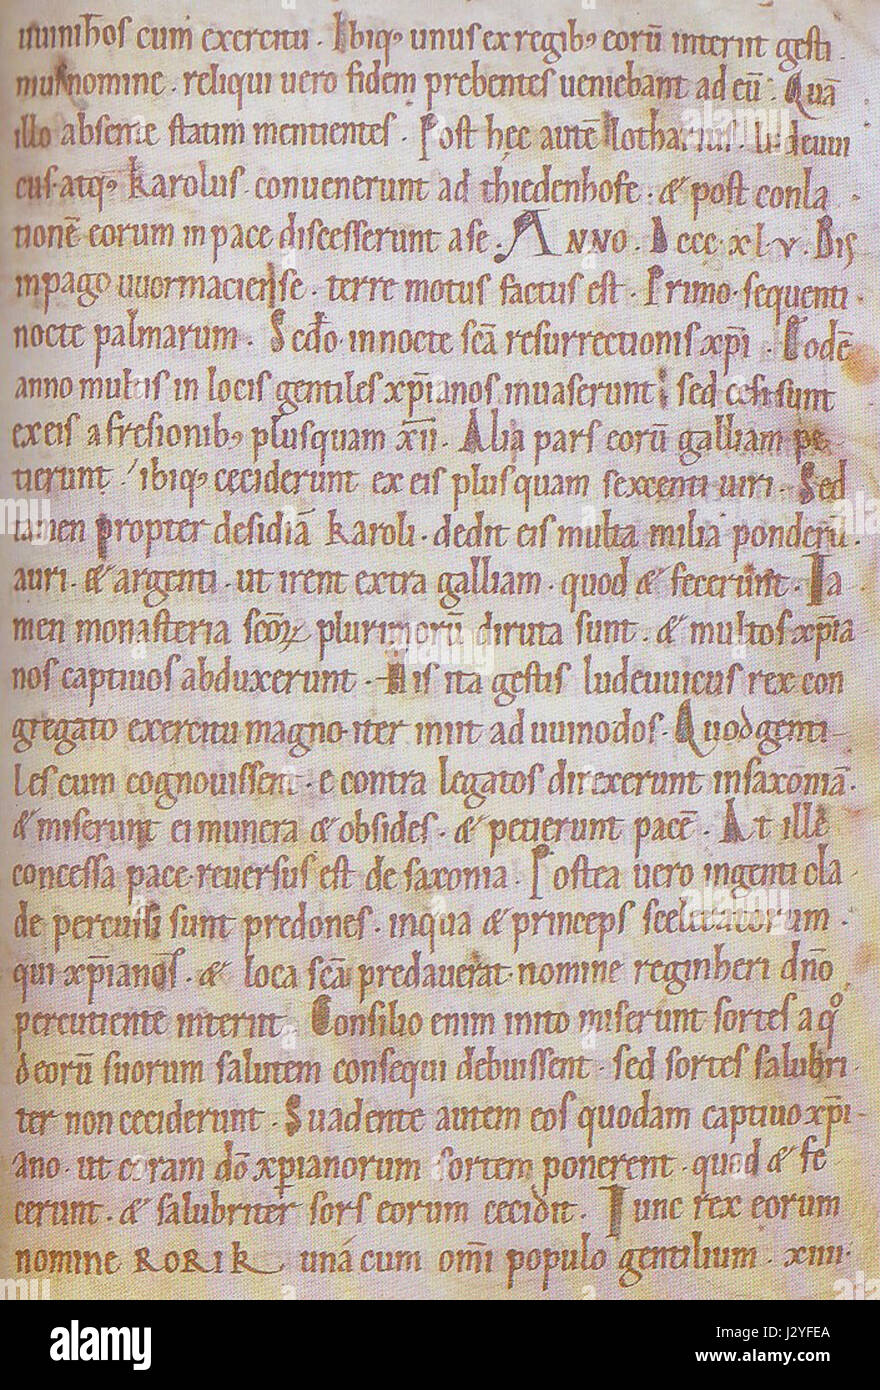 uuinithos cum exercitu . Ibiq; unus ex regib; eorũ interiit gesti
musnomine . reliqui uero fidem prebentes ueniebant ad eũ . Quã
illo absente statim mentientes . Post hęc autẽ lotharius . ludeuui
cus . atq; karolus . conuenerunt ad thiedenhofe . & post conla
tionẽ eorum in pace discesserunt a se . ANNO . DCCC . XLV . Bis
in pago uuormaciense . terre motus factus est . Primo . sequenti
nocte palmarum . Secdo . in nocte scã resurrectionis xp̃i . Eodẽ
anno multis in locis gentiles xp̃ianos inuaserunt ; sed cesi sunt
ex eis a fresionib; plus quam xii . Alia pars eorũ galliam pe
tierunt / ibiq; ceciderunt ex eis plus quam sexcenti uiri . Sed
tamen propter desidiã karoli . dedit eis multa milia ponderũ .
auri . & argenti . ut irent extra galliam . quod & fecerunt . Ta
men monasteria scõꝝ plurimorũ diruta sunt . & multos xp̃ia
nos captiuos abduxerunt . His ita gestis ludeuuicus rex con
gregato exercitu magno . iter iniit ad uuinodos . Quod genti
les cum cognouissent . e contra legatos direxerunt in saxoniã .
& miserunt ei munera & obsides . & petierunt pacẽ . At ille
concessa pace . reuersus est de saxonia . Postea uero ingenti cla
de percussi sunt predones . in qua & princeps sceleratorum .
qui xp̃ianos . & loca scã predauerat . nomine reginheri dño
percutiente interiit . Consilio enim inito miserunt sortes a qº
deorũ suorum salutem consequi debuissent . sed sortes salubri .
ter non ceciderunt . Suadente autem eos quodam captiuo xp̃i
ano . ut coram dõ xp̃ianorum sortem ponerent . quod & fe
cerunt . & salubriter sors eorum cecidit . Tunc rex eorum
nomine RORIK unã cum om̃i populo gentilium . xiiii .
alamy
Image ID: J2YFEA
www.alamy.com